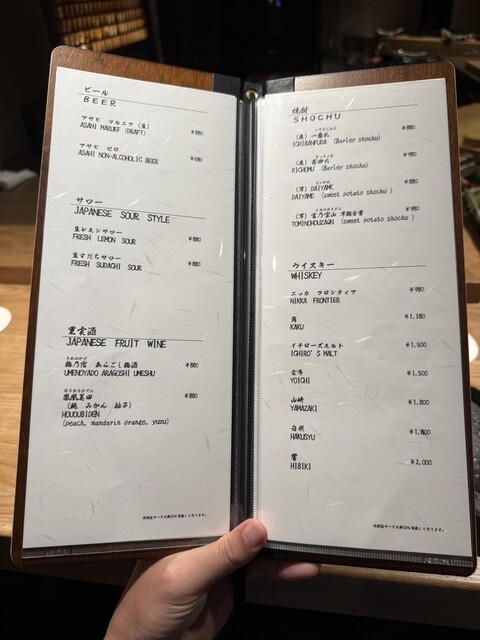 ビール
BEER
アサヒ マルエフ (生)
ASAHI MARUEF (DRAFT) ¥880
アサヒ ゼロ
ASAHI NON-ALCOHOLIC BEER ¥680
サワー
JAPANESE SOUR STYLE
生レモンサワー
FRESH LEMON SOUR ¥880
生すだちサワー
FRESH SUDACHI SOUR ¥880
果実酒
JAPANESE FRUIT WINE
梅乃宿 あらごし梅酒 ¥880
UMENOYADO ARAGOSHI UMESHU
鳳凰美田 ¥880
(桃 みかん 柚子)
HOUOUBIDEN
(peach, mandarin orange, yuzu)
焼酎
SHOCHU
(麦) 一番札 ¥880
ICHIBANFUDA (Barley shochu)
(麦) ¥980
KICHOMU (Barley shochu)
(芋) DAIYAME ¥880
DAIYAME (sweet potato shochu )
(芋) 富乃宝山 ¥980
TOMINOHOUZAN (sweet potato shochu )
ウイスキー
WHISKEY
ニッカ フロンティア ¥980
NIKKA FRONTIER
KAKU ¥1,180
イチローズモルト ¥1,500
ICHIRO'S MALT
余市 ¥1,500
YOICHI
山崎 ¥1,800
YAMAZAKI
白州 ¥1,800
HAKUSYU
響 ¥2,000
HIBIKI